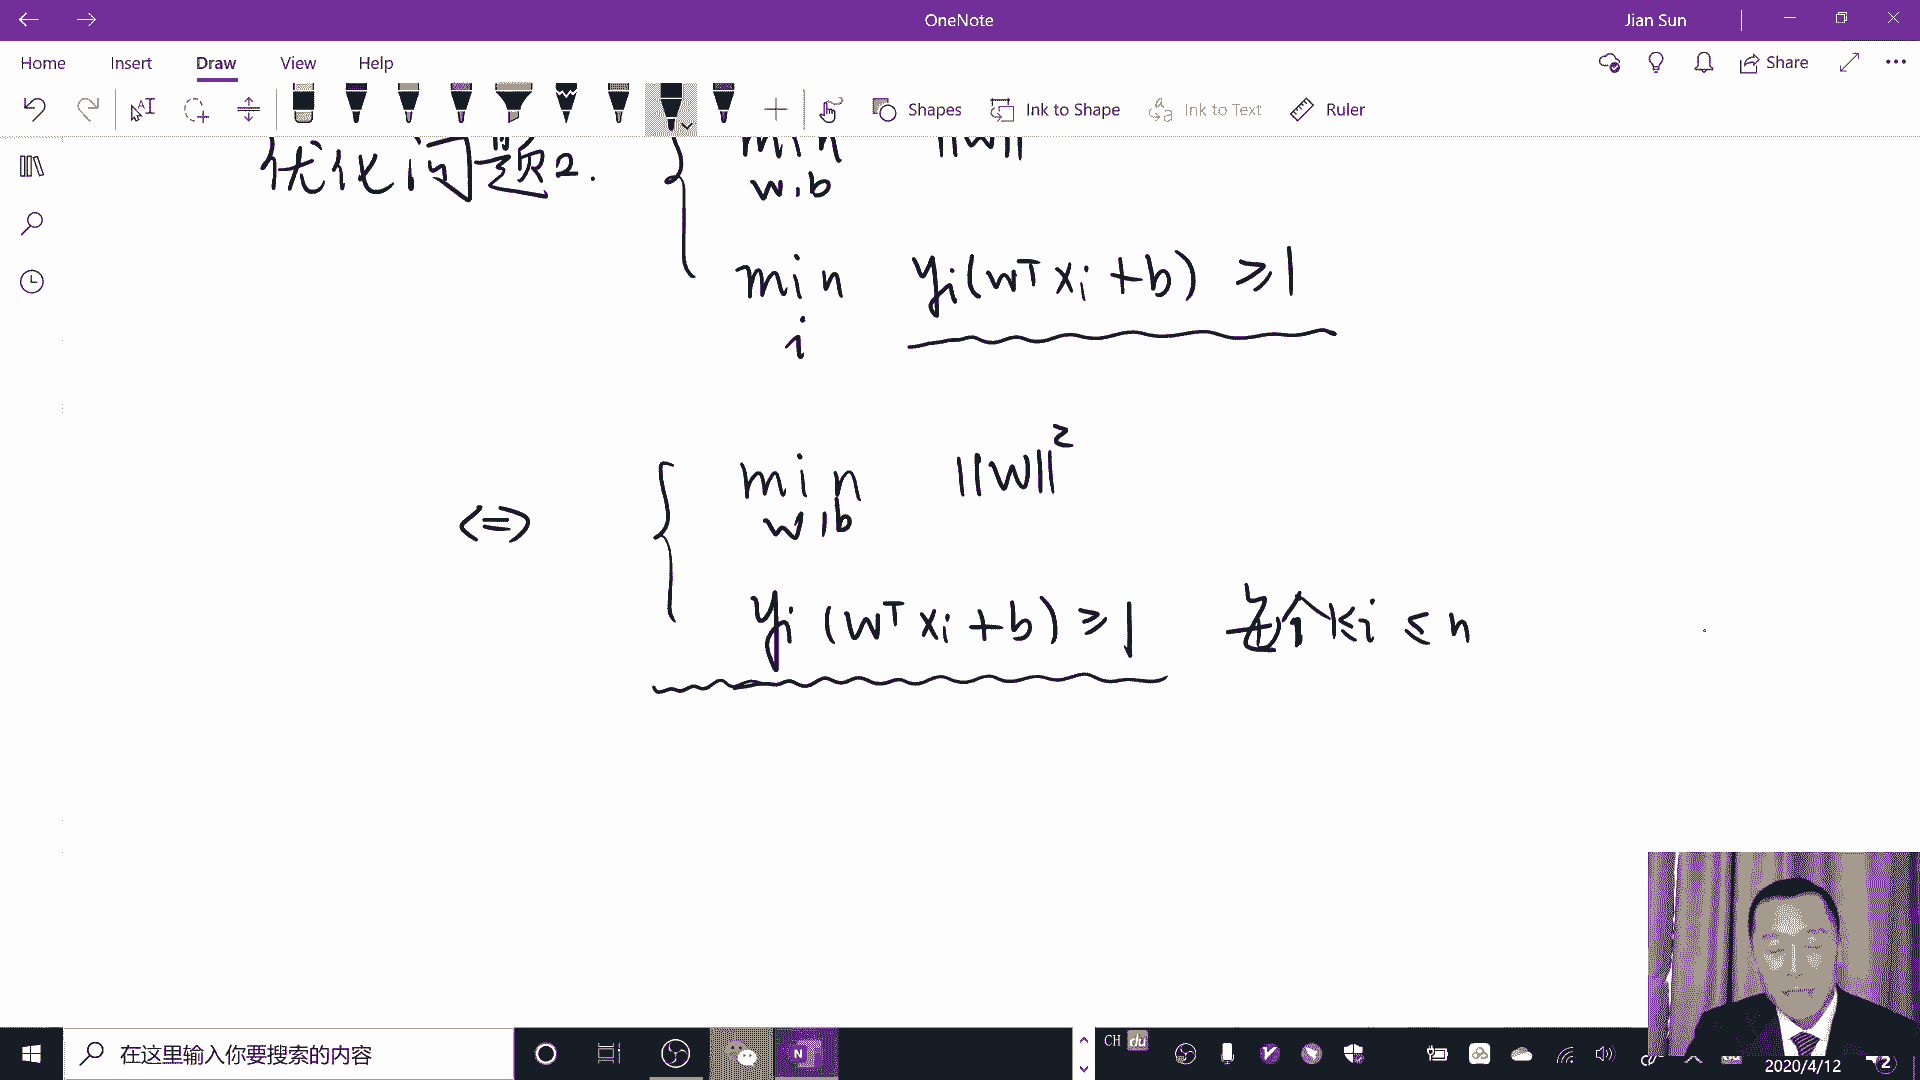 OneNote
Jian Sun
Home Insert Draw View Help
Share
Shapes Ink to Shape Ink to Text Ruler
优化问题2. { min ||w||
w,b
min yᵢ(wᵀxᵢ+b) ≥1
i
<=> { min ||w||²
w,b
yᵢ(wᵀxᵢ+b)≥1 每个1≤i≤n
在这里输入你要搜索的内容
CH du
2020/4/12
2